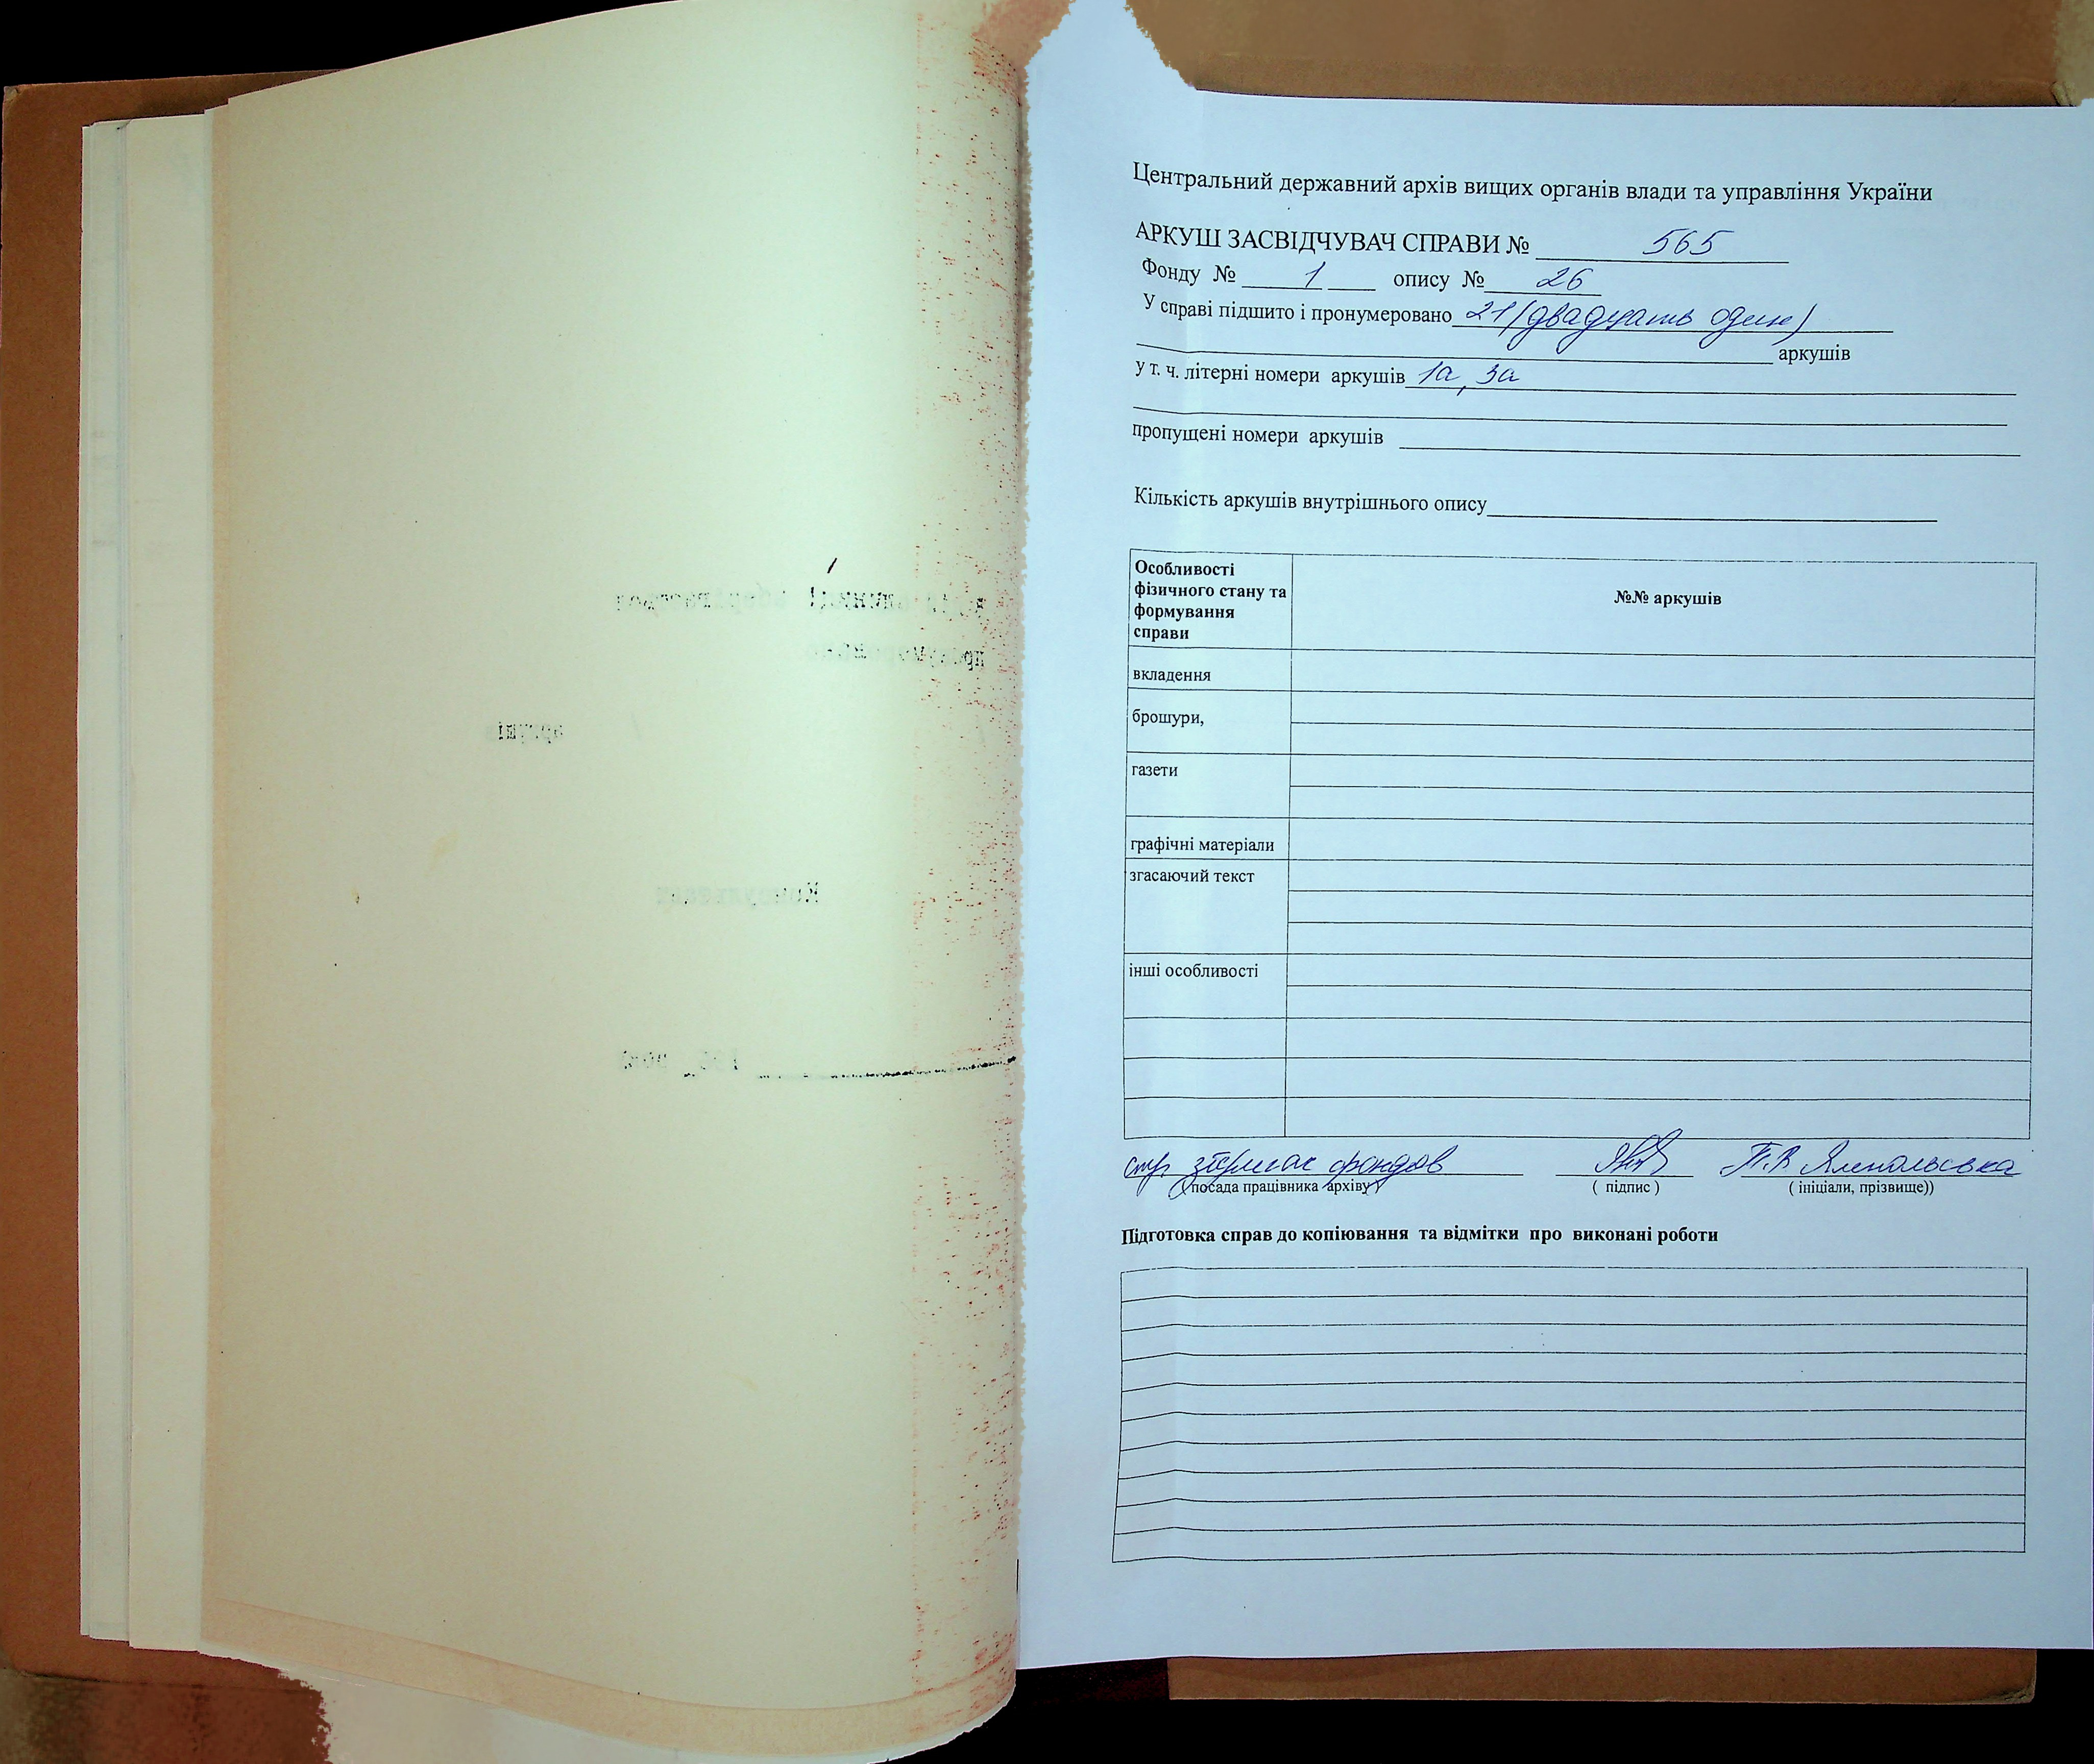 Центральний державний архів вищих органів влади та управління України
АРКУШ ЗАСВІДЧУВАЧ СПРАВИ № 565
Фонду № 1 опису № 26
У справі підшито і пронумеровано 21 (двадцать один)
аркушів
у т. ч. літерні номери аркушів 1а, 3а
пропущені номери аркушів
Кількість аркушів внутрішнього опису
Особливості фізичного стану та формування справи
№№ аркушів
вкладення
брошури,
газети
графічні матеріали
згасаючий текст
інші особливості
фондов
( посада працівника архіву )
( підпис )
( ініціали, прізвище))
Підготовка справ до копіювання та відмітки про виконані роботи